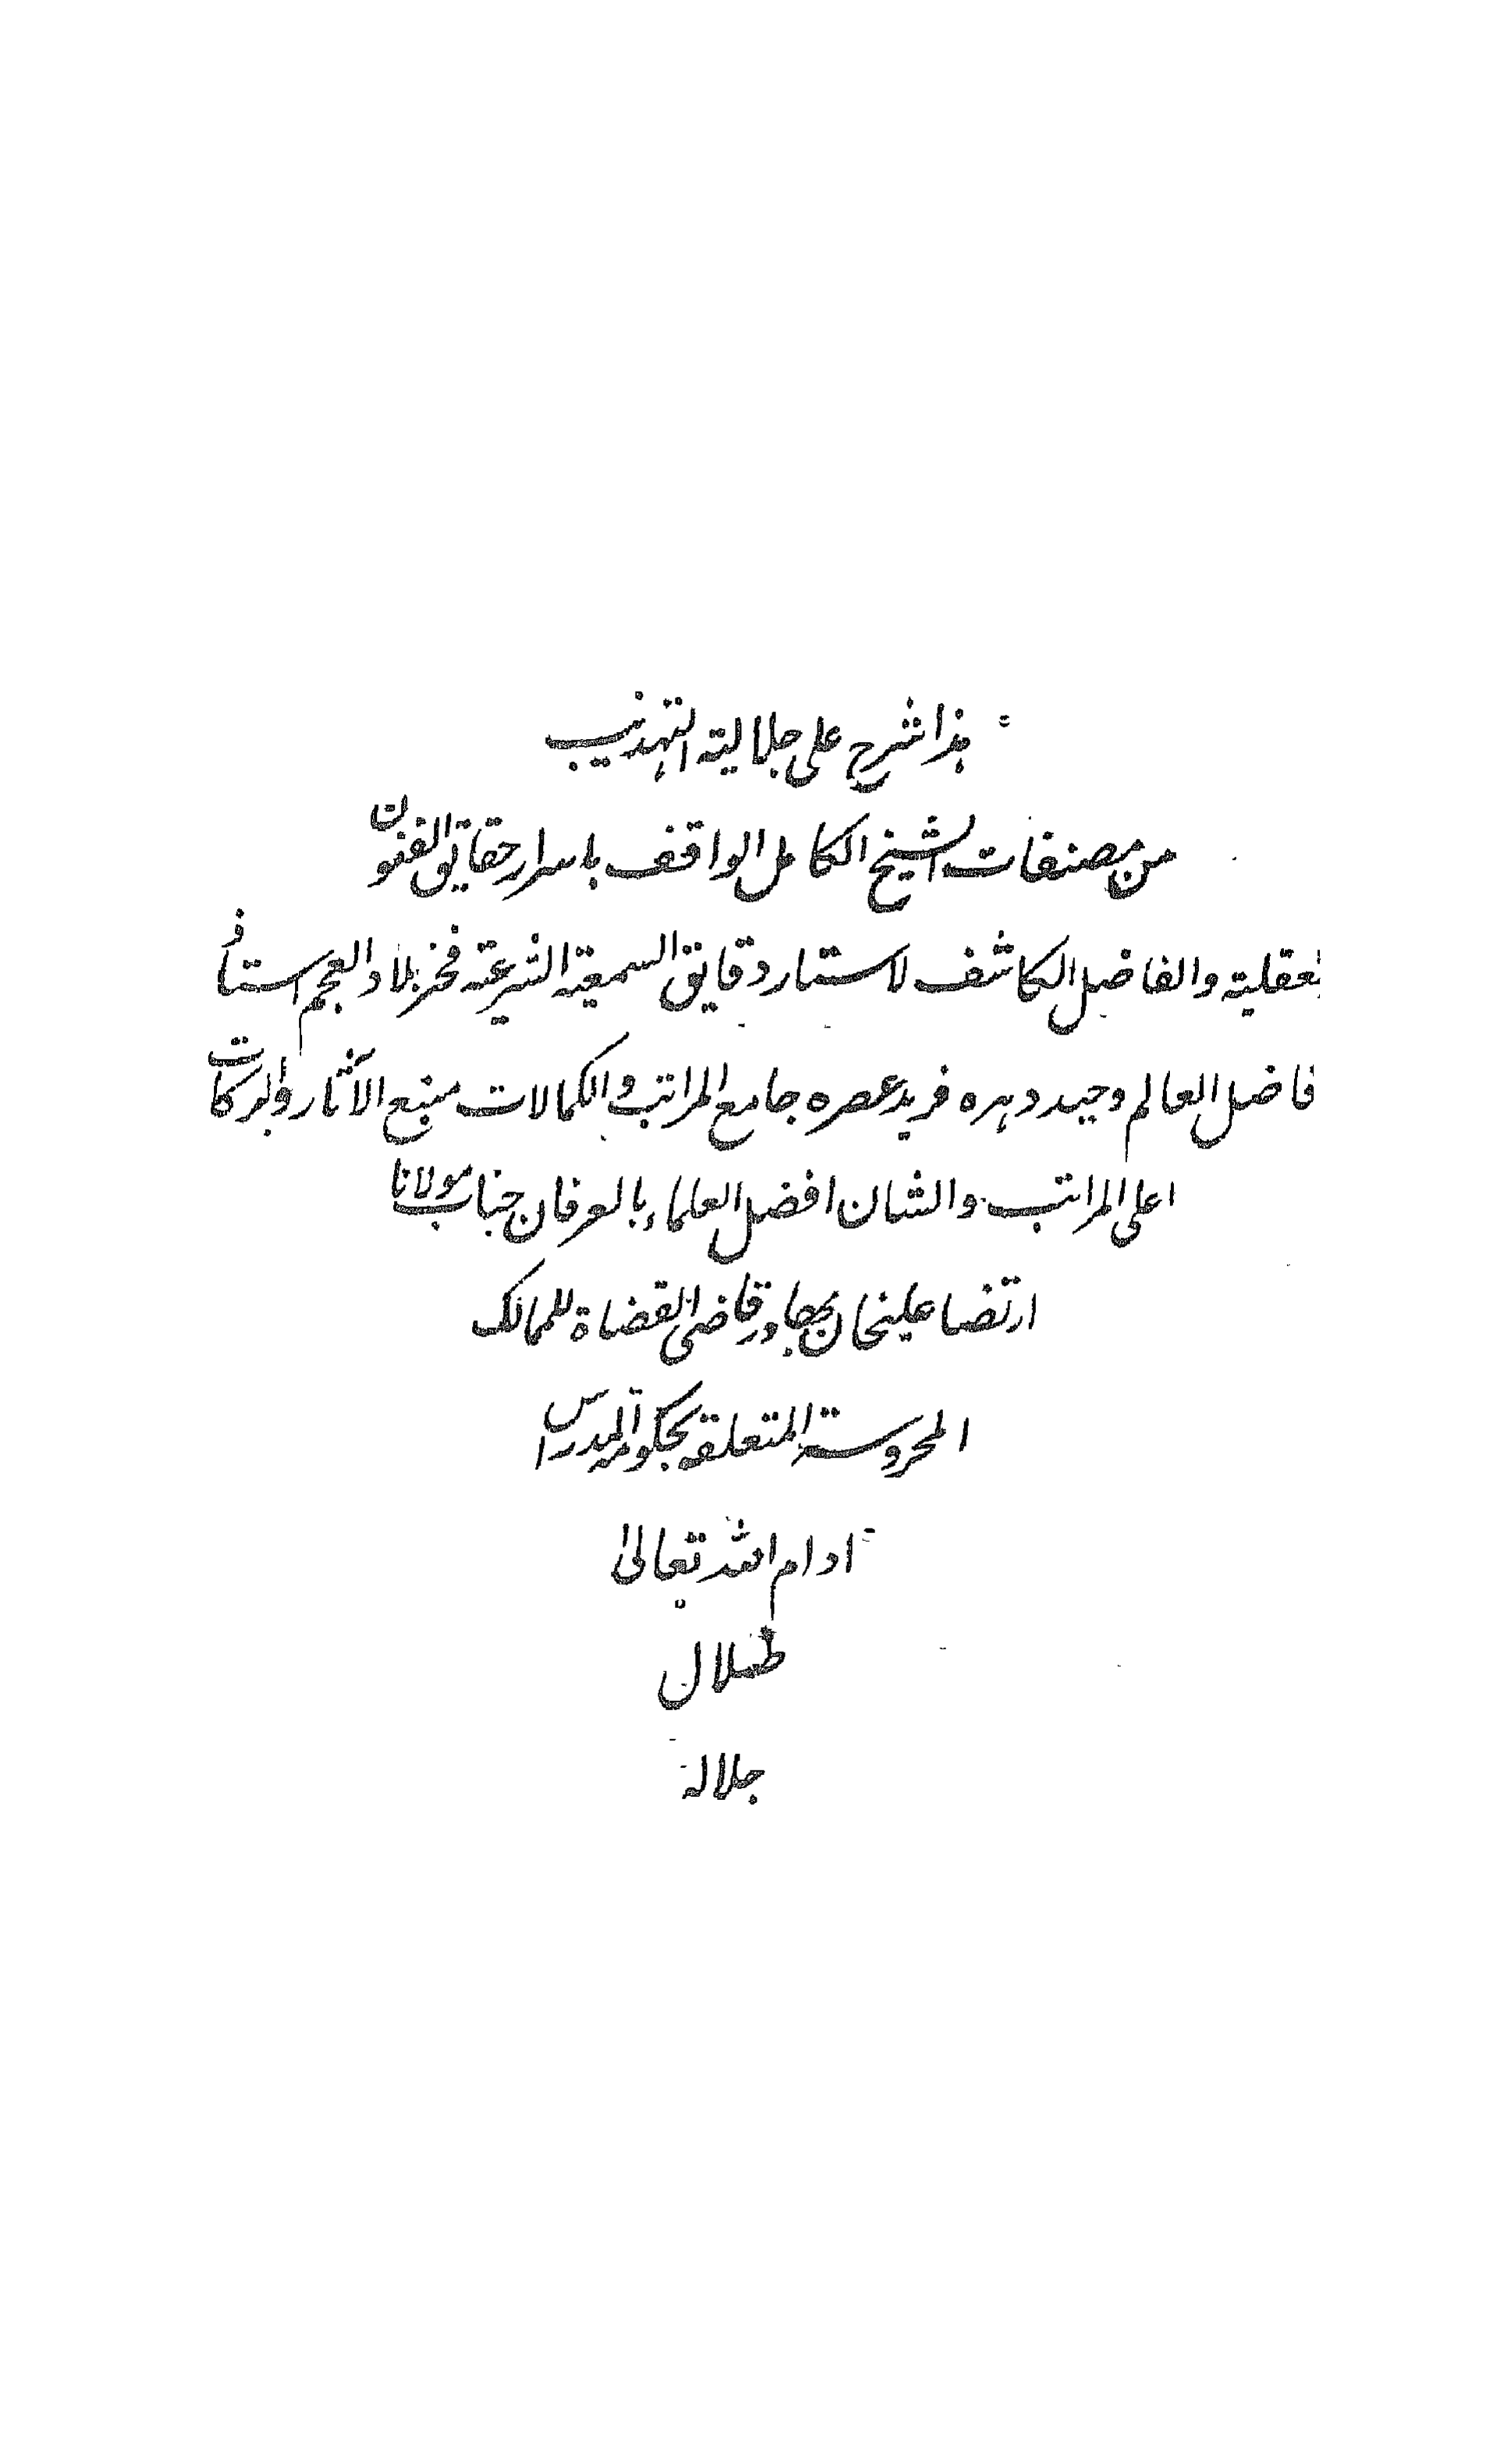 هذا شرح على جلالية التهذيب
من مصنفات الشيخ الكامل الواقف باسرار حقايق الفنون
لعقلية والفاضل الكاشف لاستار دقايق السمعية الشرعية فخر بلاد العجم استاذ
فاضل العالم وحيد دهره فريد عصره جامع المراتب والكمالات منبع الآثار والبركات
اعلى المراتب والشان افضل العلماء بالعرفان جناب مولانا
ارتضا عليخان بهادر قاضى القضاة للممالك
المحروسة المتعلقة بحكومة المدراس
ادام الله تعالىٰ
ظلال
جلاله